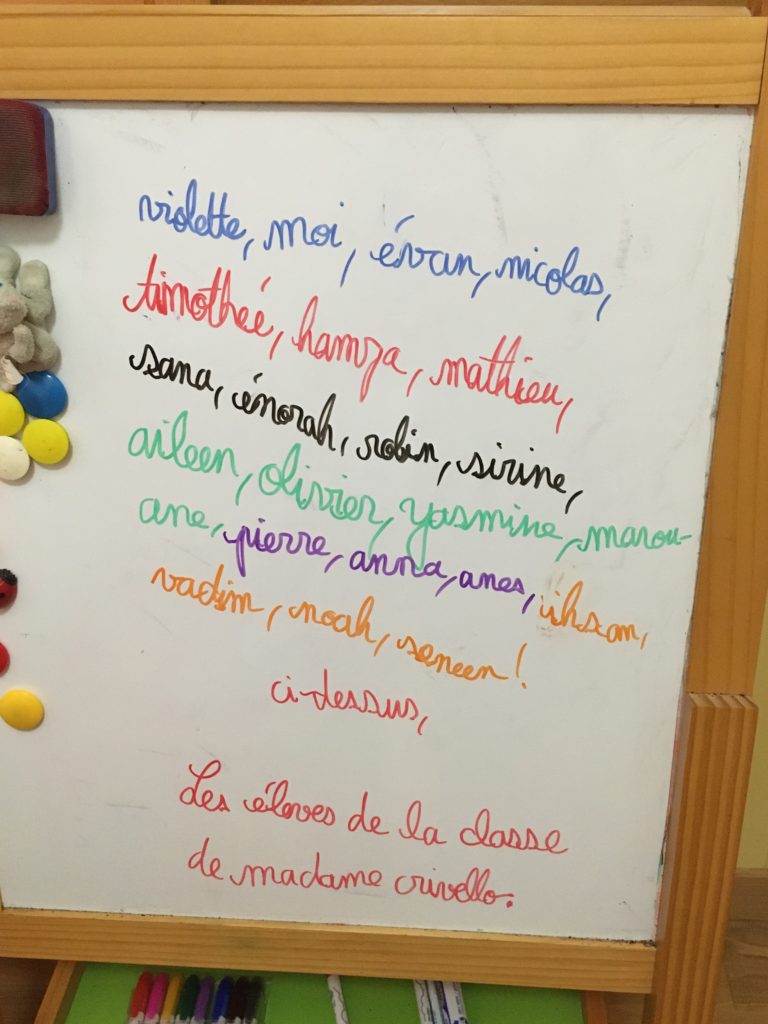 violette, moi, évan, nicolas,
timotheé, hamza, mathieu,
sana, énorah, robin, sirine,
aileen, olivier, yasmine, marou-
ane, pierre, anna, anes, ihsan,
vadim, noah, seneen!
ci-dessus,
Les élèves de la classe
de madame crivello.